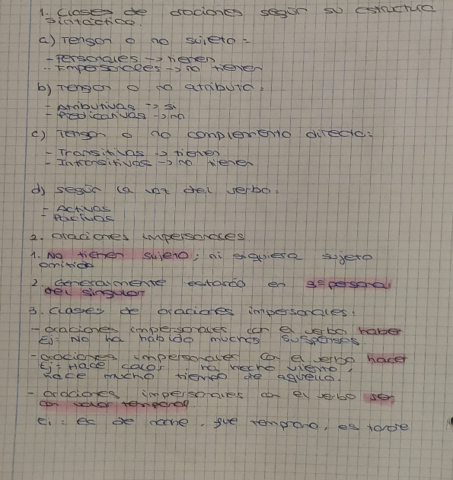 1. Clases de oraciones según su estructura
sintáctica.
a) Tengan o no sujeto:
- Personales -> tienen
- Impersonales -> no tienen
b) Tengan o no atributo.
- Atributivas -> sí
- Predicativas -> no
c) Tengan o no complemento directo:
- Transitivas -> tienen
- Intransitivas -> no tienen
d) según la voz del verbo.
- Activas
- Pasivas
2. oraciones impersonales
1. No tienen sujeto, ni siquiera sujeto
omitido
2. Generalmente estando en 3ª persona
del singular
3. clases de oraciones impersonales:
- oraciones impersonales con el verbo haber
Ej: No ha habido muchos suspensos
- oraciones impersonales con el verbo hacer
Ej: Hace calor, ha hecho viento,
hace mucho tiempo de aquello.
- oraciones impersonales con el verbo ser
con valor temporal
Ej: es de noche, fue temprano, es tarde